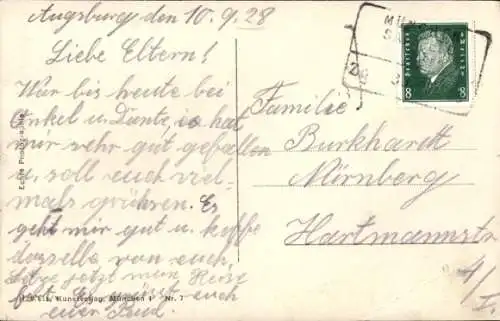 Augsburg den 10.9.28
Liebe Eltern!
War bis heute bei
Onkel u. Tante, es hat
mir sehr gut gefallen
u. soll euch viel-
mals grüßen. Es
geht mir gut u. hoffe
dasselbe von euch.
Setze jetzt mein Reise
fort. Es grüßt euch
euer Bub.
Familie
Burkhardt
Nürnberg
Hartmannstr
4/I
MÜN
DEUTSCHES
REICH
8 8
Echte Photographie
Kunstverlag, München Nr. 7